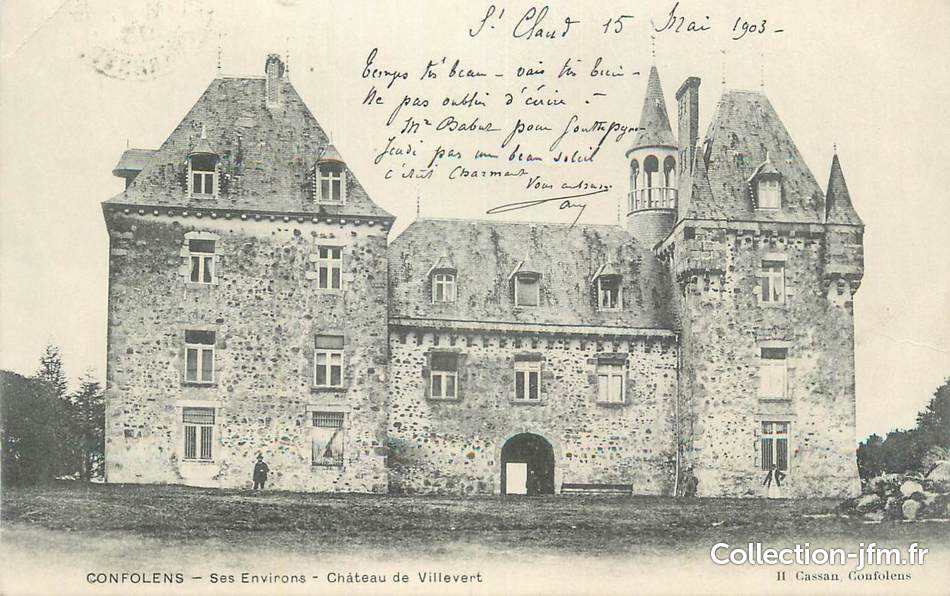 St Claud 15 Mai 1903 -
Temps très beau - vais très bien -
Ne pas oublier d'écrire. -
Mr Babut pour
Jeudi pas un beau soleil
c'était Charmant
Vous embrasse
CONFOLENS - Ses Environs - Château de Villevert
Collection-jfm.fr
H. Cassan, Confolens